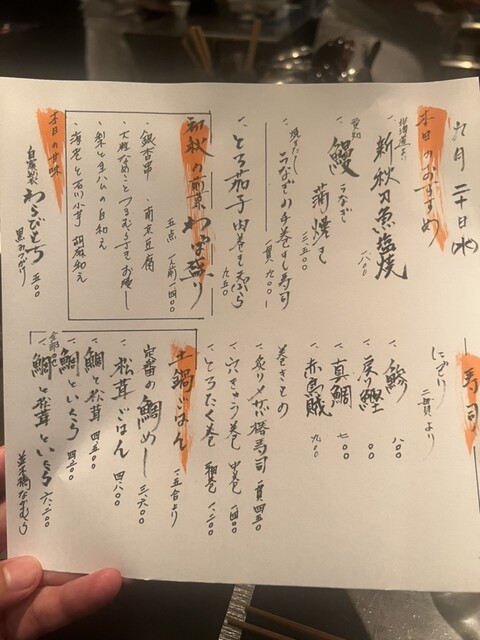 九月二十日(水)
本日のおすすめ
北海道产
新秋刀魚塩焼
一八〇〇
愛知
鰻 うなぎ 蒲焼き
三、五〇〇
焼きたて
うなぎの手巻き寿司
一貫 九〇〇
とろ茄子肉巻き天ぷら
九五〇
初秋の前菜わっぱ盛り
五点 一人前 一四〇〇
・銀杏串 ・南京豆腐
・大粒なめことつるむらさきお浸し
・梨と生ハムの白和え
・海老と石川小芋 胡麻和え
本日の甘味
自家製 わらびもち 五〇〇
黒みつがけ
寿司
にぎり 二貫より
鯵 八〇〇
戻り鰹
真鯛 七〇〇
赤烏賊 九〇〇
巻きもの
炙り〆サバ棒寿司 一貫 四五〇
穴きゅう巻 中巻
とろたく巻 細巻 一、二〇〇
土鍋ごはん
一、五合より
定番の鯛めし 三、六〇〇
松茸ごはん 四、八〇〇
鯛と松茸
鯛といくら
全部のせ
鯛と松茸といくら 六、二〇〇
並木橋なかむら